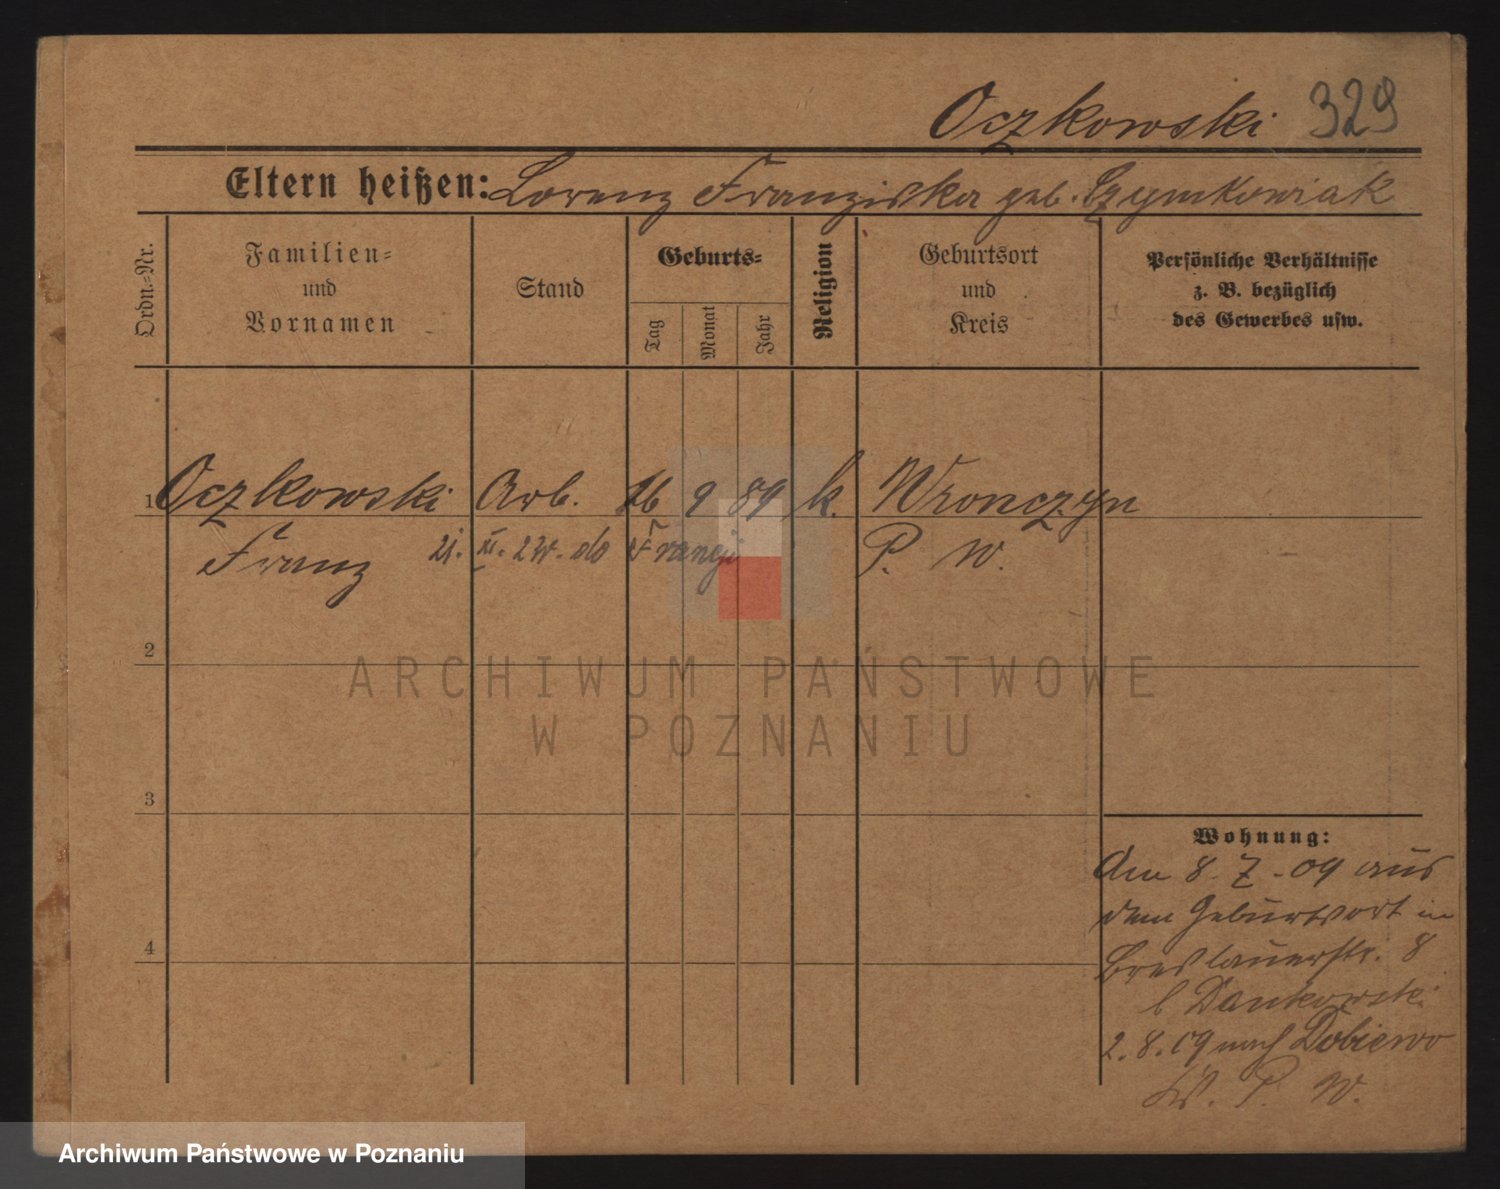 Oczkowski 329
Eltern heißen: Lorenz Franziska geb. Czymkowiak
Ordn.-Nr.
Familien- und Vornamen
Stand
Geburts-
Tag
Monat
Jahr
Religion
Geburtsort und Kreis
Persönliche Verhältnisse
z. B. bezüglich
des Gewerbes usw.
1 Oczkowski Arb. 16 9 89 k. Wronczyn
Franz 21. II. 24. do Francji P. W.
2
3
4
Wohnung:
Am 8. 7. 09 aus
dem Geburtsort in
Breslauerstr. 8
b Dankowski
2. 8. 09 nach Dobiewo
P. W.
ARCHIWUM PAŃSTWOWE
W POZNANIU
Archiwum Państwowe w Poznaniu